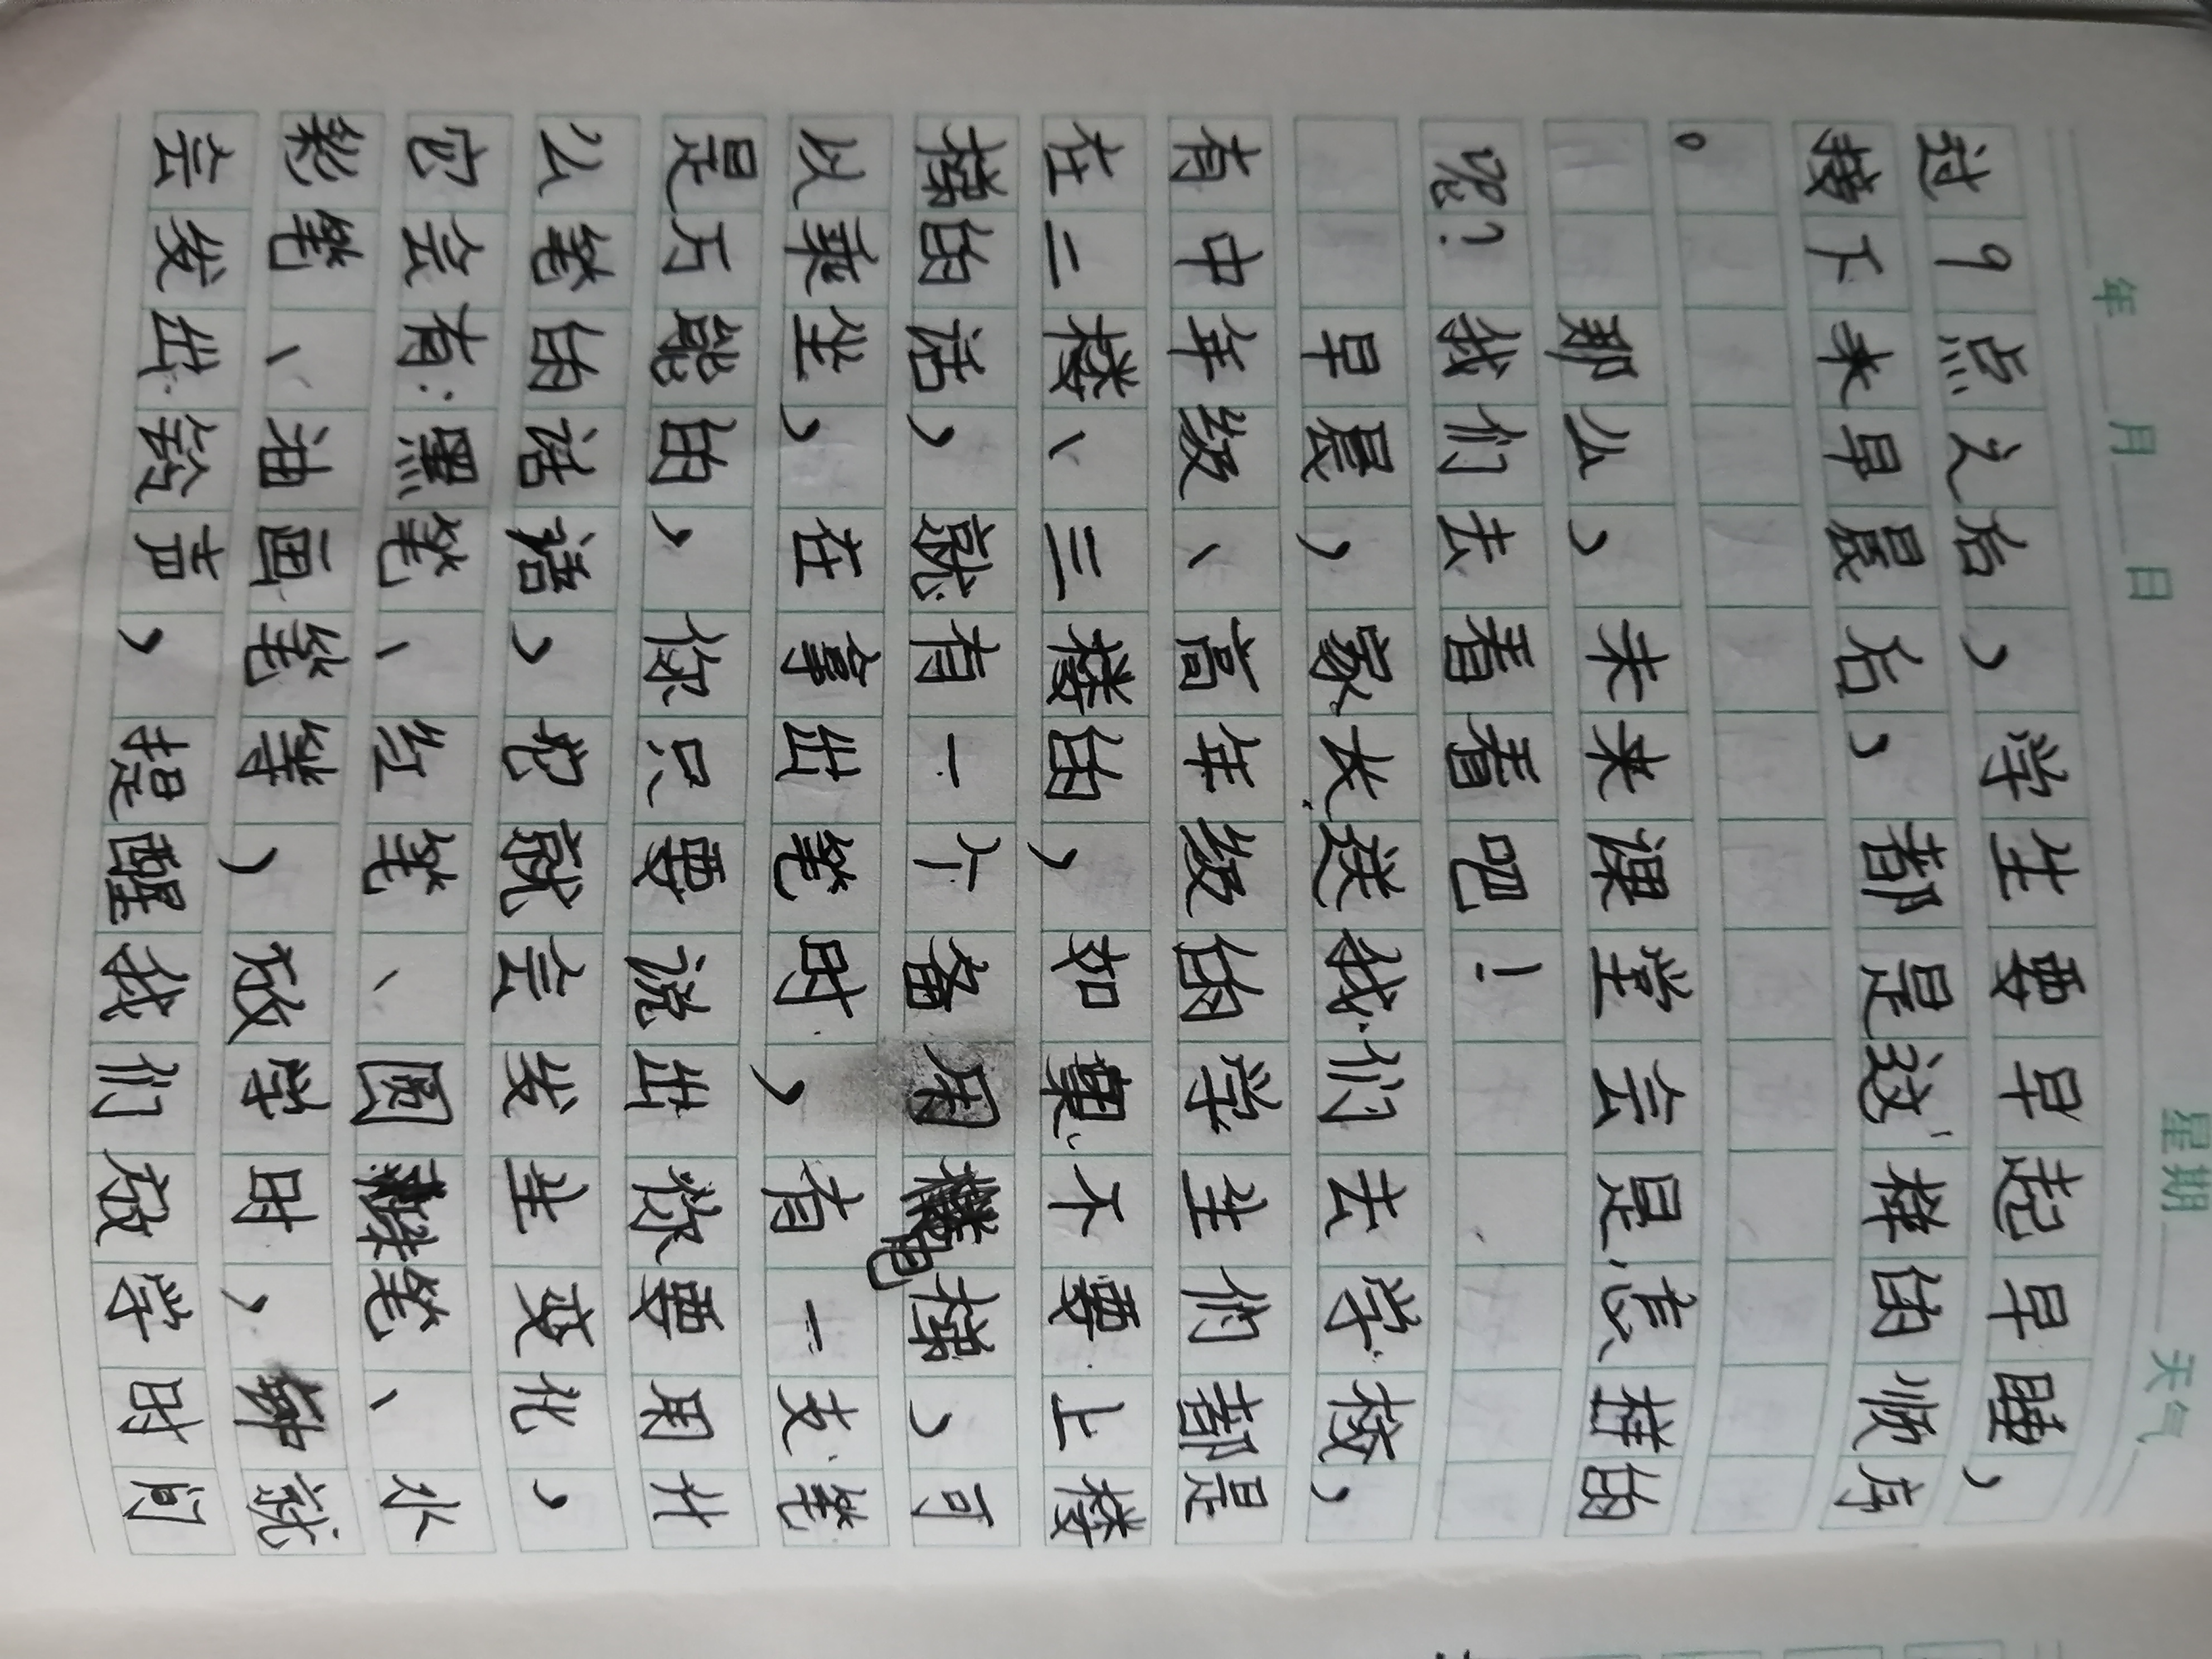 年 月 日 星期 天气
过9点之后，学生要早起早睡，
接下来早晨后，都是这样的顺序
。
那么，未来课堂会是怎样的
呢？我们去看看吧！
早晨，家长送我们去学校，
有中年级、高年级的学生们都是
在二楼、三楼的，如果不要上楼
梯的话，就有一个备用电梯，可
以乘坐，在拿出笔时，有一支笔
是万能的，你只要说出你要用什
么笔的话语，把就会发生变化，
它会有：黑笔、红笔、圆笔、水
彩笔、油画笔等，放学时，就
会发出铃声，提醒我们放学时间